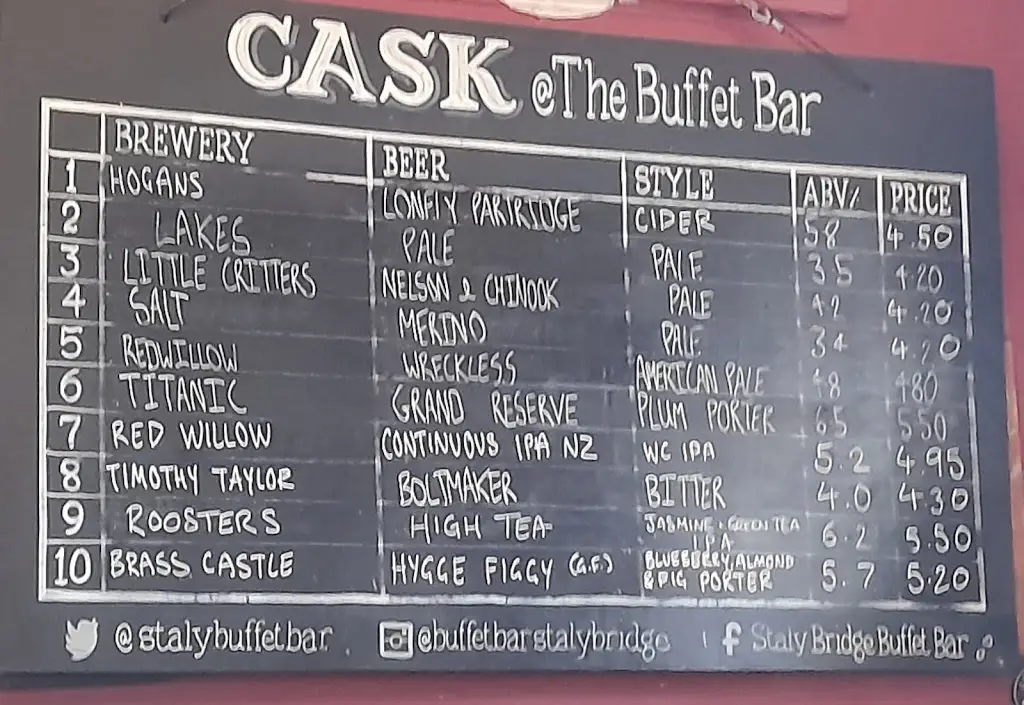 CASK @The Buffet Bar
BREWERY BEER STYLE ABV% PRICE
1 HOGANS LONELY PARTRIDGE CIDER 5.8 4.50
2 LAKES PALE PALE 3.5 4.20
3 LITTLE CRITTERS NELSON & CHINOOK PALE 4.2 4.20
4 SALT MERINO PALE 3.4 4.20
5 REDWILLOW WRECKLESS AMERICAN PALE 4.8 4.80
6 TITANIC GRAND RESERVE PLUM PORTER 6.5 5.50
7 RED WILLOW CONTINUOUS IPA NZ WC IPA 5.2 4.95
8 TIMOTHY TAYLOR BOLTMAKER BITTER 4.0 4.30
9 ROOSTERS HIGH TEA JASMINE & GREEN TEA IPA 6.2 5.50
10 BRASS CASTLE HYGGE FIGGY (G.F.) BLUEBERRY, ALMOND & FIG PORTER 5.7 5.20
@stalybuffetbar @buffetbarstalybridge f Staly Bridge Buffet Bar